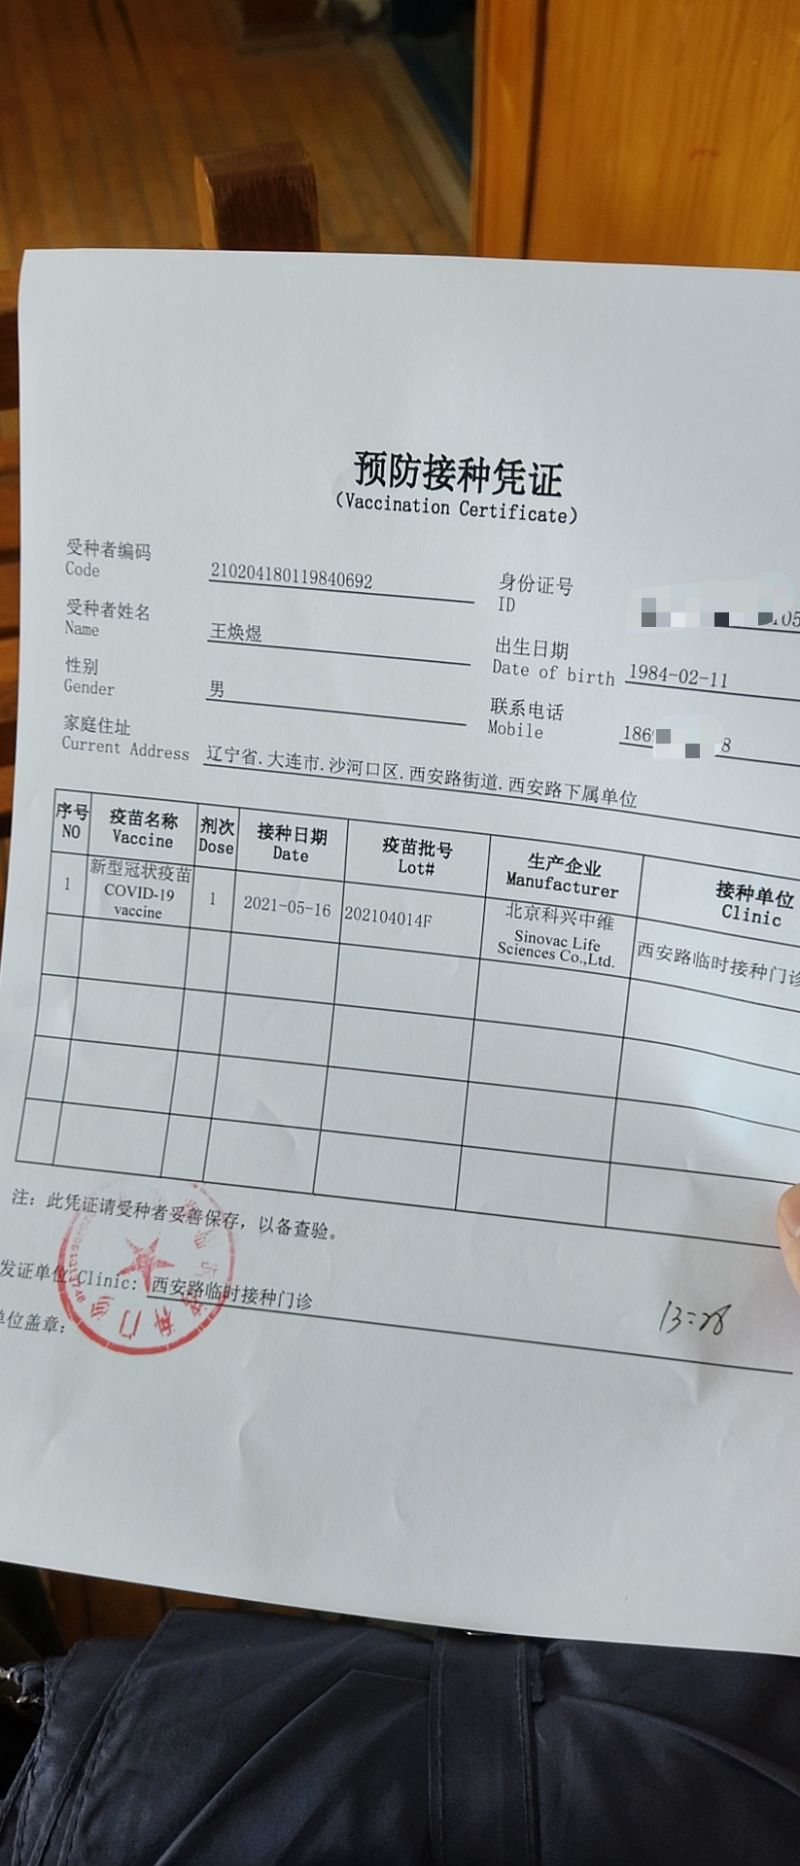 预防接种凭证
(Vaccination Certificate)
受种者编码 210204180119840692 身份证号
Code ID 105
受种者姓名 王焕煜 出生日期 1984-02-11
Name Date of birth
性别 男 联系电话 186 8
Gender Mobile
家庭住址 辽宁省.大连市.沙河口区.西安路街道.西安路下属单位
Current Address
序号 疫苗名称 剂次 接种日期 疫苗批号 生产企业 接种单位
NO Vaccine Dose Date Lot# Manufacturer Clinic
1 新型冠状疫苗 1 2021-05-16 202104014F 北京科兴中维 西安路临时接种门诊
COVID-19 Sinovac Life
vaccine Sciences Co.,Ltd.
注: 此凭证请受种者妥善保存,以备查验。
发证单位 Clinic: 西安路临时接种门诊
单位盖章:
13:28